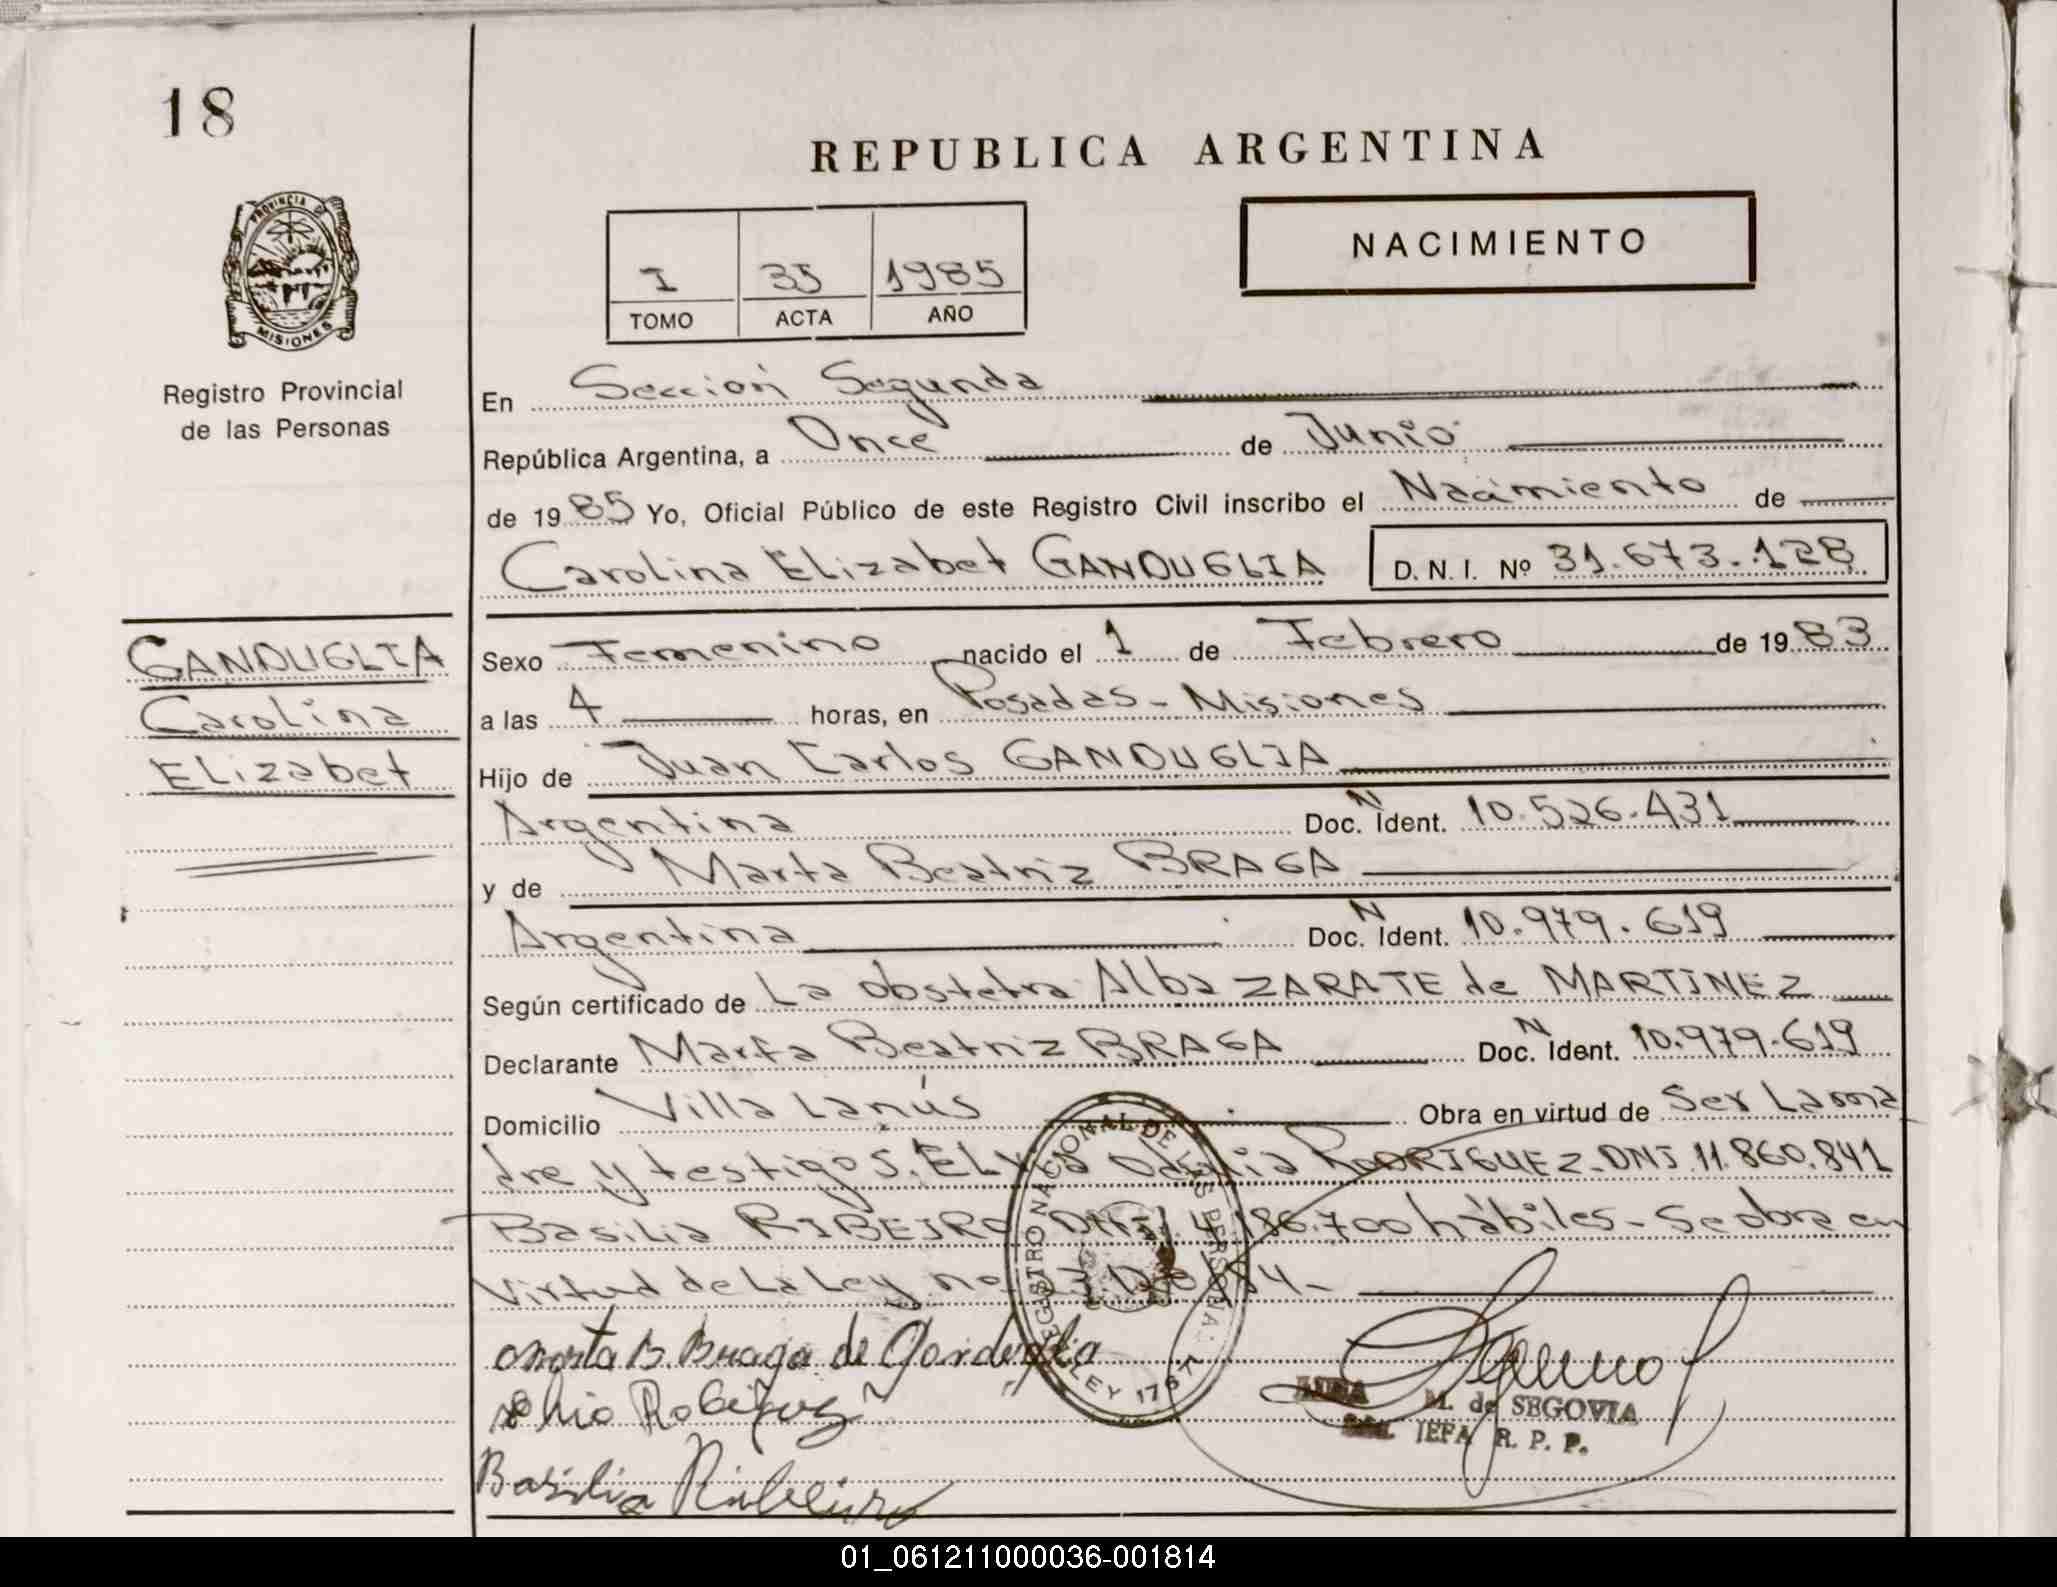 18
REPUBLICA ARGENTINA
PROVINCIA DE
MISIONES
Registro Provincial
de las Personas
I 35 1985
TOMO ACTA AÑO
NACIMIENTO
En Sección Segunda
República Argentina, a Once de Junio
de 1985 Yo, Oficial Público de este Registro Civil inscribo el Nacimiento de
Carolina Elizabet GANDUGLIA D. N. I. Nº 31.673.128
GANDUGLIA
Carolina
Elizabet
Sexo Femenino nacido el 1 de Febrero de 1983
a las 4 horas, en Posadas - Misiones
Hijo de Juan Carlos GANDUGLIA
Argentina Doc. N Ident. 10.526.431
y de Marta Beatriz BRAGA
Argentina Doc. N Ident. 10.979.619
Según certificado de La obstetra Alba ZARATE de MARTINEZ
Declarante Marta Beatriz BRAGA Doc. N Ident. 10.979.619
Domicilio Villa Lanús Obra en virtud de Ser La ma
dre y testigos. RODRIGUEZ. DNI 11.860.841
Basilia RIBEIRO DNI 4.186.700 hábiles - Se obra en
Virtud de La Ley no
REGISTRO NACIONAL DE LAS PERSONAS
LEY 17671
Marta B. Braga de Ganduglia
Basilia Ribeiro
M. de SEGOVIA
JEFA R. P. P.
01_061211000036-001814